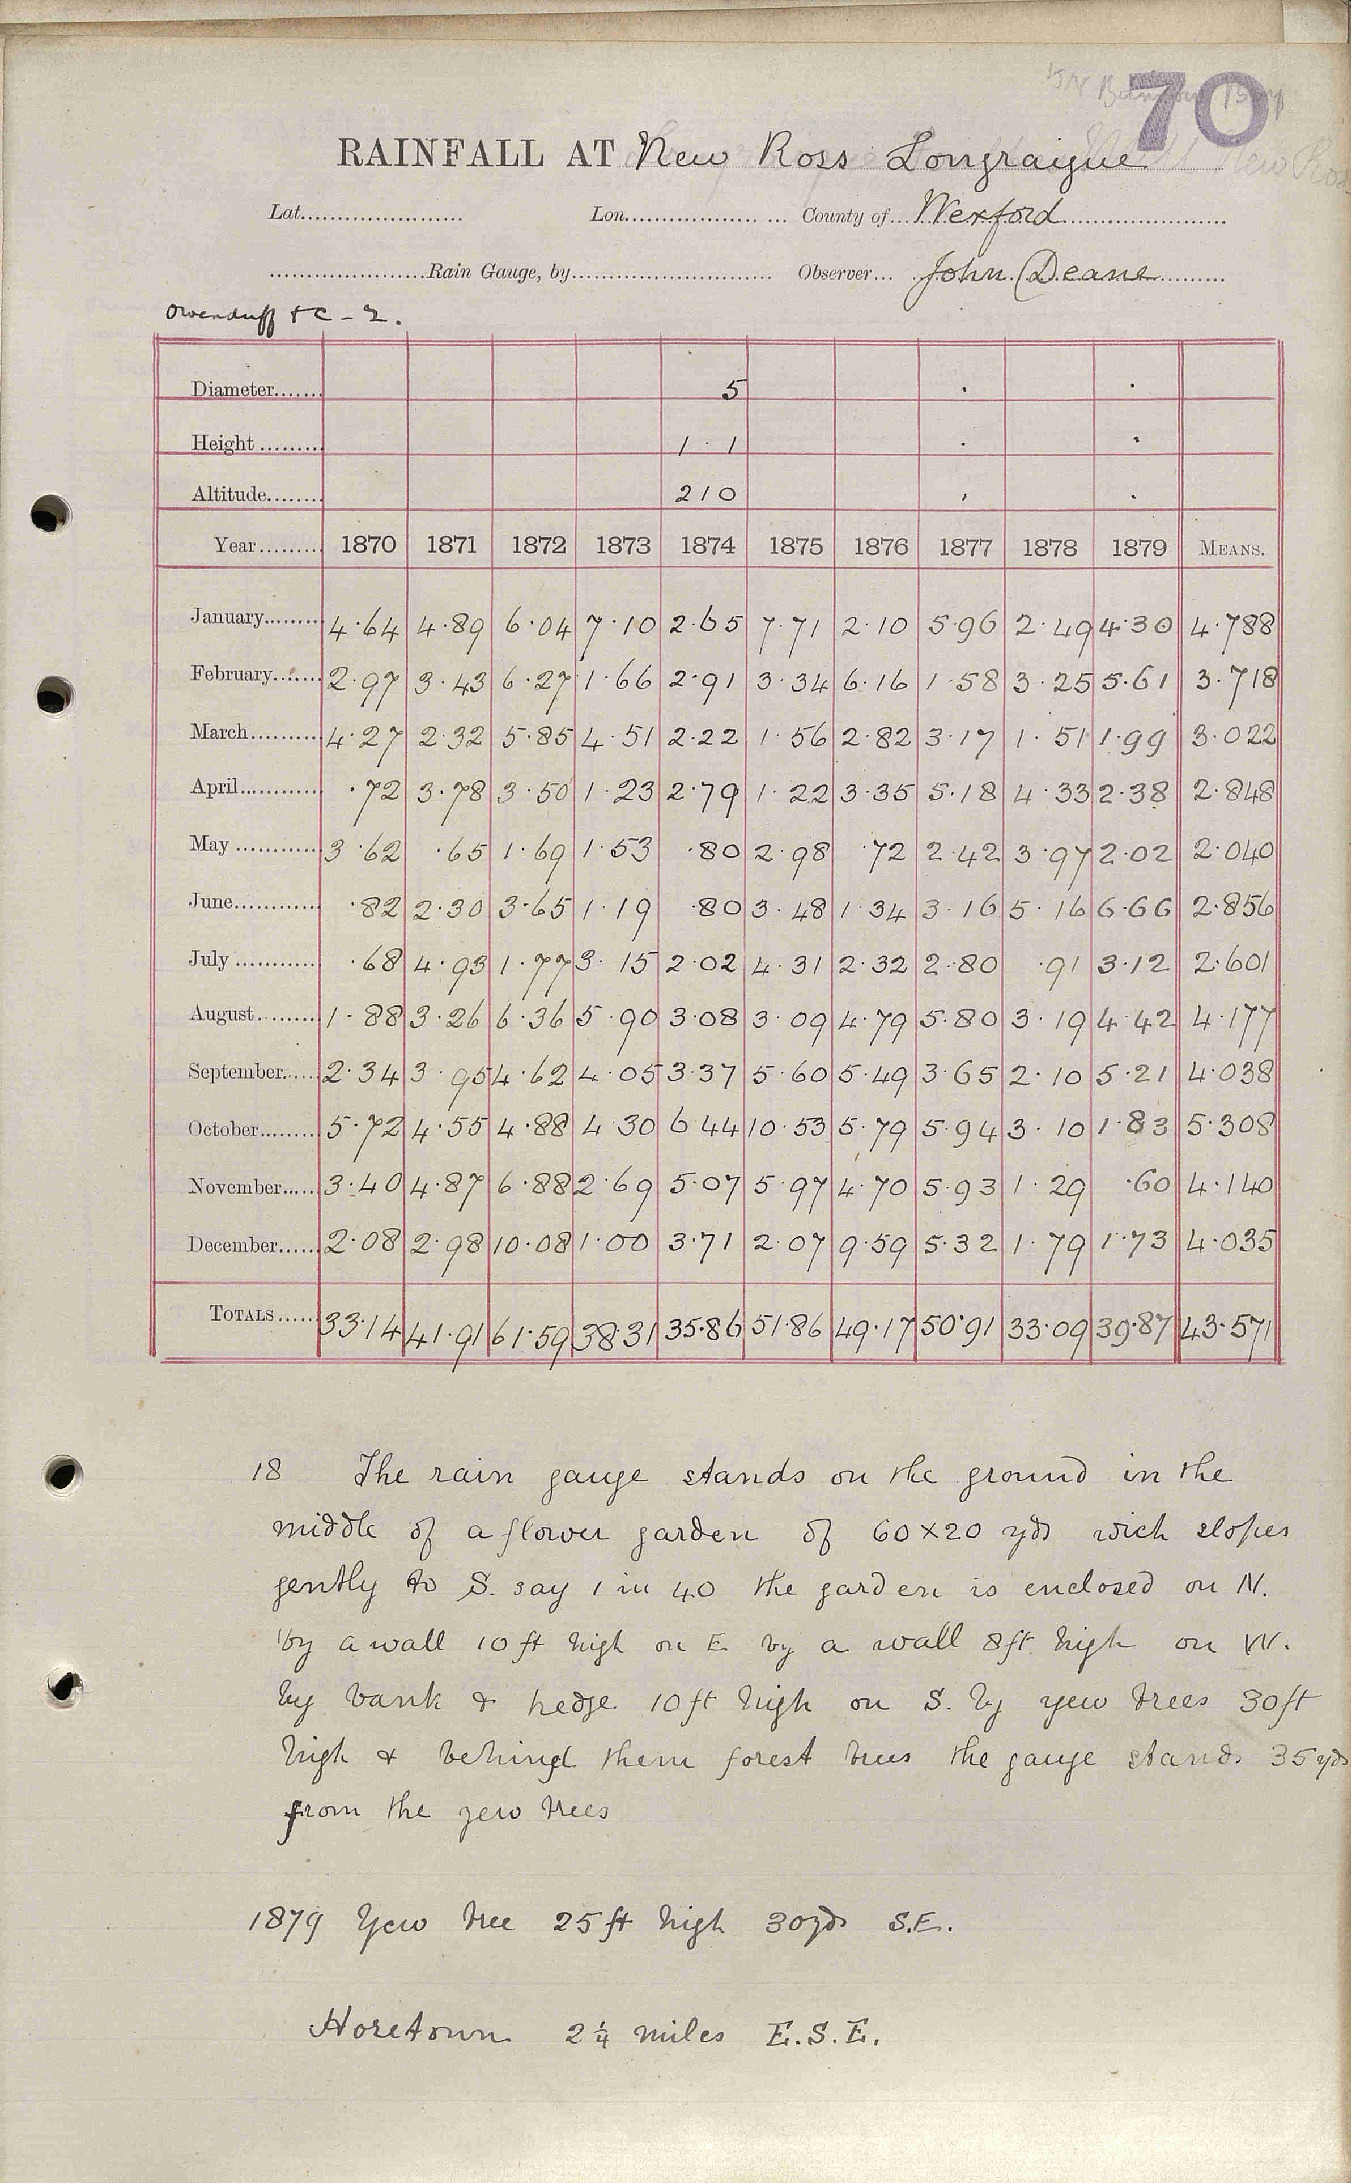 70
RAINFALL AT New Ross Longraigue
Lat. Lon. County of Wexford
Rain Gauge, by Observer John Deane
Owenduff & C - 2.
Diameter 5 . .
Height 1 . 1 . .
Altitude 210 . .
Year 1870 1871 1872 1873 1874 1875 1876 1877 1878 1879 MEANS.
January 4.64 4.89 6.04 7.10 2.65 7.71 2.10 5.96 2.49 4.30 4.788
February 2.97 3.43 6.27 1.66 2.91 3.34 6.16 1.58 3.25 5.61 3.718
March 4.27 2.32 5.85 4.51 2.22 1.56 2.82 3.17 1.51 1.99 3.022
April .72 3.78 3.50 1.23 2.79 1.22 3.35 5.18 4.33 2.38 2.848
May 3.62 .65 1.69 1.53 .80 2.98 .72 2.42 3.97 2.02 2.040
June .82 2.30 3.65 1.19 .80 3.48 1.34 3.16 5.16 6.66 2.856
July .68 4.93 1.77 3.15 2.02 4.31 2.32 2.80 .91 3.12 2.601
August 1.88 3.26 6.36 5.90 3.08 3.09 4.79 5.80 3.19 4.42 4.177
September 2.34 3.95 4.62 4.05 3.37 5.60 5.49 3.65 2.10 5.21 4.038
October 5.72 4.55 4.88 4.30 6.44 10.53 5.79 5.94 3.10 1.83 5.308
November 3.40 4.87 6.88 2.69 5.07 5.97 4.70 5.93 1.29 .60 4.140
December 2.08 2.98 10.08 1.00 3.71 2.07 9.59 5.32 1.79 1.73 4.035
TOTALS 33.14 41.91 61.59 38.31 35.86 51.86 49.17 50.91 33.09 39.87 43.571
18 The rain gauge stands on the ground in the
middle of a flower garden of 60x20 yds wich slopes
gently to S. say 1 in 40 the garden is enclosed on N.
by a wall 10 ft high on E by a wall 8ft high on W.
by bank & hedge 10 ft high on S. by yew trees 30ft
high & behind them forest trees the gauge stands 35 yds
from the yew trees
1879 Yew tree 25 ft high 30yds S.E.
Horetown 2¼ miles E.S.E.